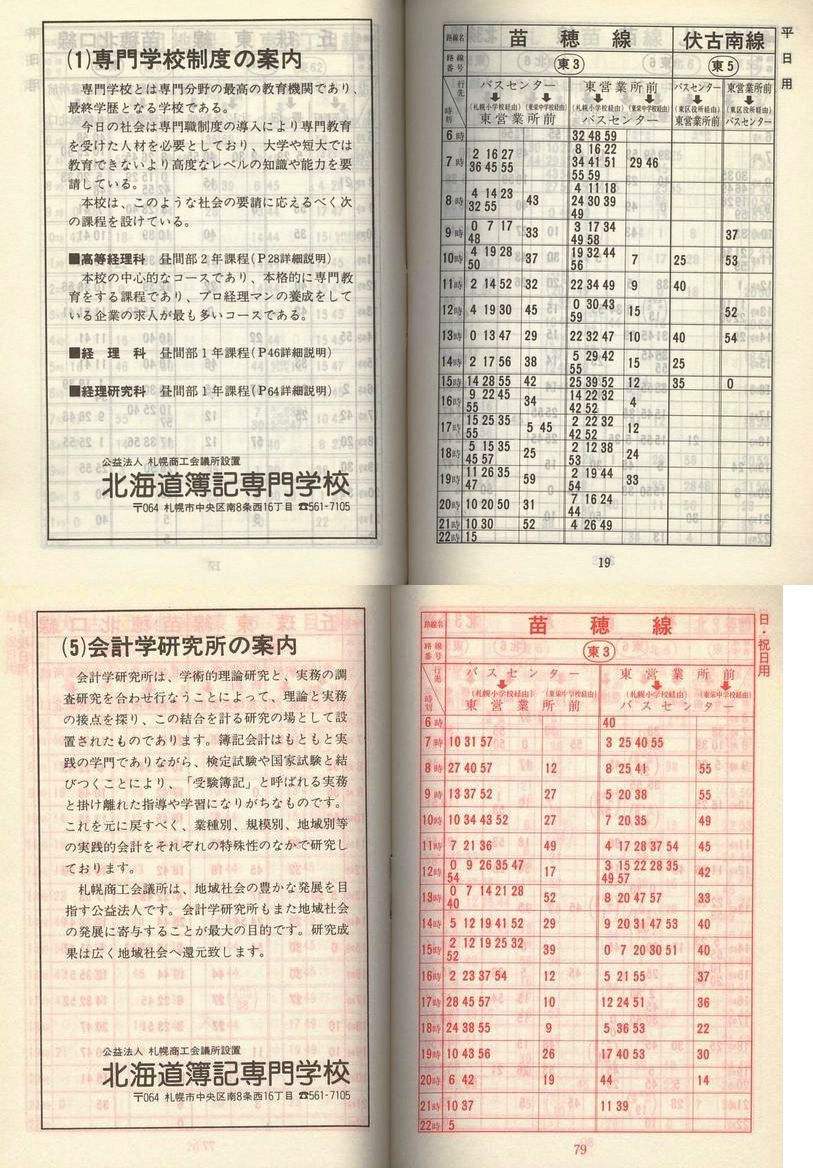 (1)専門学校制度の案内
専門学校とは専門分野の最高の教育機関であり、
最終学歴となる学校である。
今日の社会は専門職制度の導入により専門教育
を受けた人材を必要としており、大学や短大では
教育できないより高度なレベルの知識や能力を要
請している。
本校は、このような社会の要請に応えるべく次
の課程を設けている。
■高等経理科 昼間部2年課程(P28詳細説明)
本校の中心的なコースであり、本格的に専門教
育をする課程であり、プロ経理マンの養成をして
いる企業の求人が最も多いコースである。
■経理科 昼間部1年課程(P46詳細説明)
■経理研究科 昼間部1年課程(P64詳細説明)
公益法人 札幌商工会議所設置
北海道簿記専門学校
〒064 札幌市中央区南8条西16丁目 ☎561-7105
平日用
路線名 苗穂線 伏古南線
路線番号 東3 東5
行先 時刻
バスセンター 東営業所前 バスセンター 東営業所前
(札幌小学校経由) (東栄中学校経由) (札幌小学校経由) (東栄中学校経由) (東区役所経由) (東区役所経由)
東営業所前 バスセンター 東営業所前 バスセンター
6時 32 48 59
7時 2 16 27 36 45 55 8 16 22 34 41 51 55 59 29 46
8時 4 14 23 32 55 43 4 11 18 24 30 39 49
9時 0 7 17 48 33 3 17 34 49 58 37
10時 4 19 28 50 37 19 32 44 56 7 25 53
11時 2 14 52 32 22 34 49 9 40
12時 4 19 30 45 0 30 43 59 15 52
13時 0 13 47 29 22 32 47 10 40 54
14時 2 17 56 38 5 29 42 55 15 25
15時 14 28 55 42 25 39 52 12 35 0
16時 9 22 45 55 34 14 22 32 42 52 4
17時 15 25 35 55 5 45 2 22 32 42 52 12
18時 5 15 35 45 57 25 2 12 38 53 24
19時 11 26 35 47 59 2 19 44 54 33
20時 10 20 50 31 7 16 24 44
21時 10 30 52 4 26 49
22時 15
19
(5)会計学研究所の案内
会計学研究所は、学術的理論研究と、実務の調
査研究を合わせ行なうことによって、理論と実務
の接点を探り、この結合を計る研究の場として設
置されたものであります。簿記会計はもともと実
践の学門でありながら、検定試験や国家試験と結
びつくことにより、「受験簿記」と呼ばれる実務
と掛け離れた指導や学習になりがちなものです。
これを元に戻すべく、業種別、規模別、地域別等
の実践的会計をそれぞれの特殊性のなかで研究し
ております。
札幌商工会議所は、地域社会の豊かな発展を目
指す公益法人です。会計学研究所もまた地域社会
の発展に寄与することが最大の目的です。研究成
果は広く地域社会へ還元致します。
公益法人 札幌商工会議所設置
北海道簿記専門学校
〒064 札幌市中央区南8条西16丁目 ☎561-7105
日・祝日用
路線名 苗穂線
路線番号 東3
行先 時刻
バスセンター 東営業所前
(札幌小学校経由) (東栄中学校経由) (札幌小学校経由) (東栄中学校経由)
東営業所前 バスセンター
6時 40
7時 10 31 57 3 25 40 55
8時 27 40 57 12 8 25 41 55
9時 13 37 52 27 5 20 38 55
10時 10 34 43 52 27 7 20 35 49
11時 7 21 36 49 4 17 28 37 54 45
12時 0 9 26 35 47 54 17 3 15 22 28 35 49 57 42
13時 0 7 14 21 28 40 52 8 20 47 57 33
14時 5 12 19 41 52 29 9 20 31 47 53 40
15時 2 12 19 25 32 52 39 0 7 20 30 51 40
16時 2 23 37 54 12 5 21 55 37
17時 28 45 57 10 12 24 51 36
18時 24 38 55 9 5 36 53 22
19時 10 43 56 26 17 40 53 30
20時 6 42 19 44 14
21時 10 37 11 39
22時 5
79